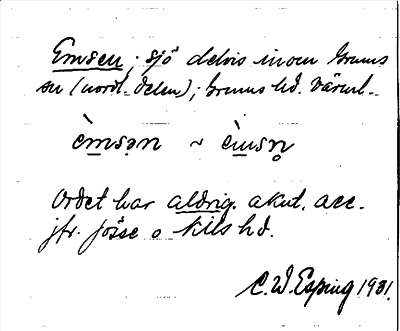 Emsen; sjö delvis inom Grums
sn (nordl. delen); Grums hd. Värml.
èmsən ~ èmsn̥
Ordet har aldrig akut. acc.
jfr. Jösse o Kils hd.
C. W. Esping 1931.